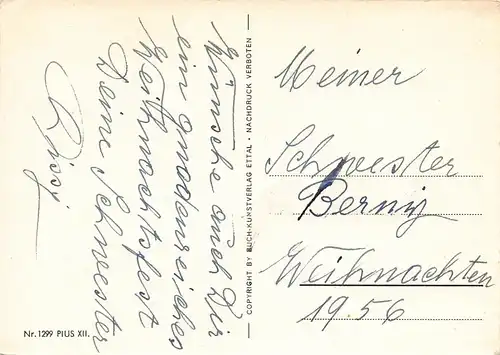 Wünsche auch Dir
ein gnadenreiches
Weihnachtsfest
Deine Schwester
Rissy
COPYRIGHT BY BUCH-KUNSTVERLAG ETTAL • NACHDRUCK VERBOTEN
Meiner
Schwester
Berny
Weihnachten
1956
Nr. 1299 PIUS XII.